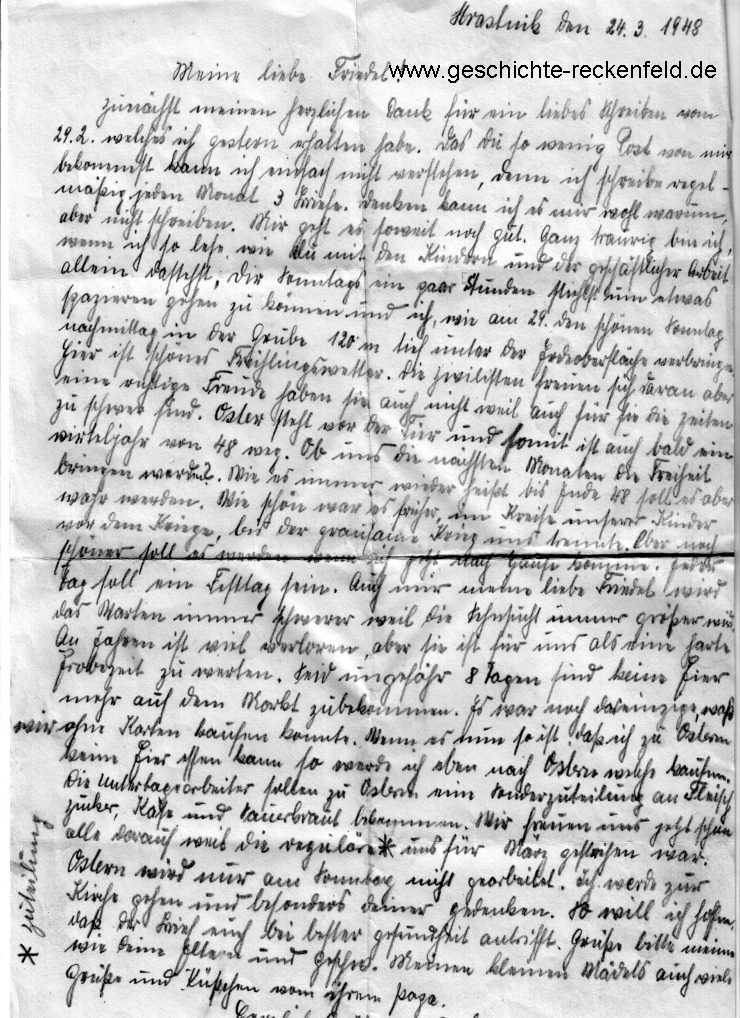 Hrastnik den 24.3.1948
Meine liebe Friedel! www.geschichte-reckenfeld.de
zunächst meinen herzlichen Dank für ein liebes Schreiben vom
29.2. welches ich gestern erhalten habe. Das du so wenig Post von mir
bekommst kann ich einfach nicht verstehen, denn ich schreibe regel-
mäßig jeden Monat 3 Briefe. Denken kann ich es mir wohl warum,
aber nicht schreiben. Mir geht es soweit noch gut. Ganz traurig bin ich,
wenn ich so lese wie du mit den Kindern und der geschäftlicher Arbeit
allein dastehst, Der Sonntags ein paar Stunden um etwas
spazieren gehen zu können und ich, wie am 29. den schönen Sonntag
nachmittag in der Grube 120 m tief unter der Erdoberfläche verbringe.
Hier ist schönes Frühlingswetter. Die Zivilisten freuen sich daran aber
eine richtige Freude haben sie auch nicht weil auch für sie die Zeiten
zu schwer sind. Oster steht vor der Tür und somit ist auch bald ein
virteljahr von 48 weg. Ob uns die nächsten Monaten die Freiheit
bringen werde? Wie es immer wieder heißt bis Ende 48 soll es aber
wahr werden. Wie schön war es früher, im Kreise unserer Kinder
vor dem Kriege, bis der grausame Krieg uns trennte. Aber noch
schöner soll es werden wenn ich jetzt nach Hause komme. Jeder
Tag soll ein Festtag sein. Auch mir meine liebe Friedel wird
das Warten immer schwerer weil die Sehnsucht immer größer wird.
An Jahren ist viel verloren, aber sie ist für uns als eine harte
Probezeit zu werten. Seid ungefähr 8 Tagen sind keine Eier
mehr auf dem Markt zubekommen. Es war noch das einzige, waß
wir ohne Karten kaufen konnte. Wenn es nun so ist, daß ich zu Ostern
keine Eier essen kann so werde ich eben nach Ostern welche kaufen.
Die Untertagearbeiter sollen zu Ostern eine Sonderzuteilung an Fleisch,
zucker, Käse und Sauerkraut bekommen. Wir freuen uns jetzt schon
alle darauf weil die reguläre* uns für März gestrichen war.
Ostern wird nur am Sonntag nicht gearbeitet. Ich werde zur
Kirche gehen und besonders deiner gedenken. So will ich hoffen,
daß der Brief euch bei bester gesundheit antrifft. Grüße bitte meine
wie deine Eltern und Geschw. Meinen kleinen Mädels auch viele
Grüße und Küßchen vom ihrem papa.
* zuteilung